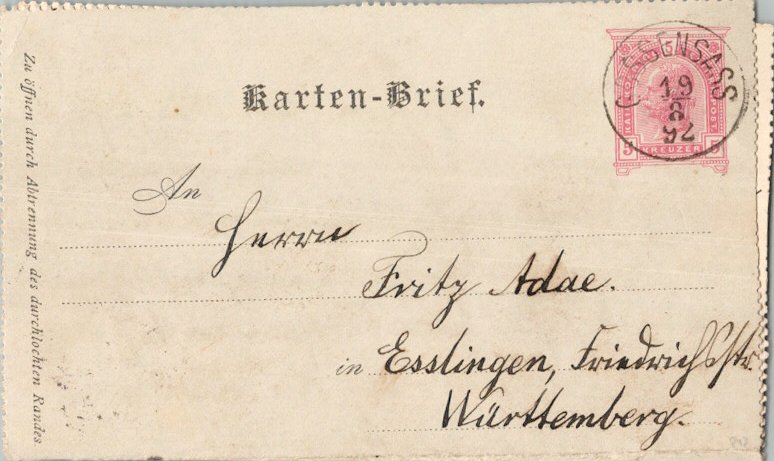 Karten-Brief.
GOSSENSASS
19
8
92
5 KREUZER 5
An
Herrn
Fritz Adae.
in Esslingen, Friedrichsstr.
Württemberg.
Zu öffnen durch Abtrennung des durchlochten Randes